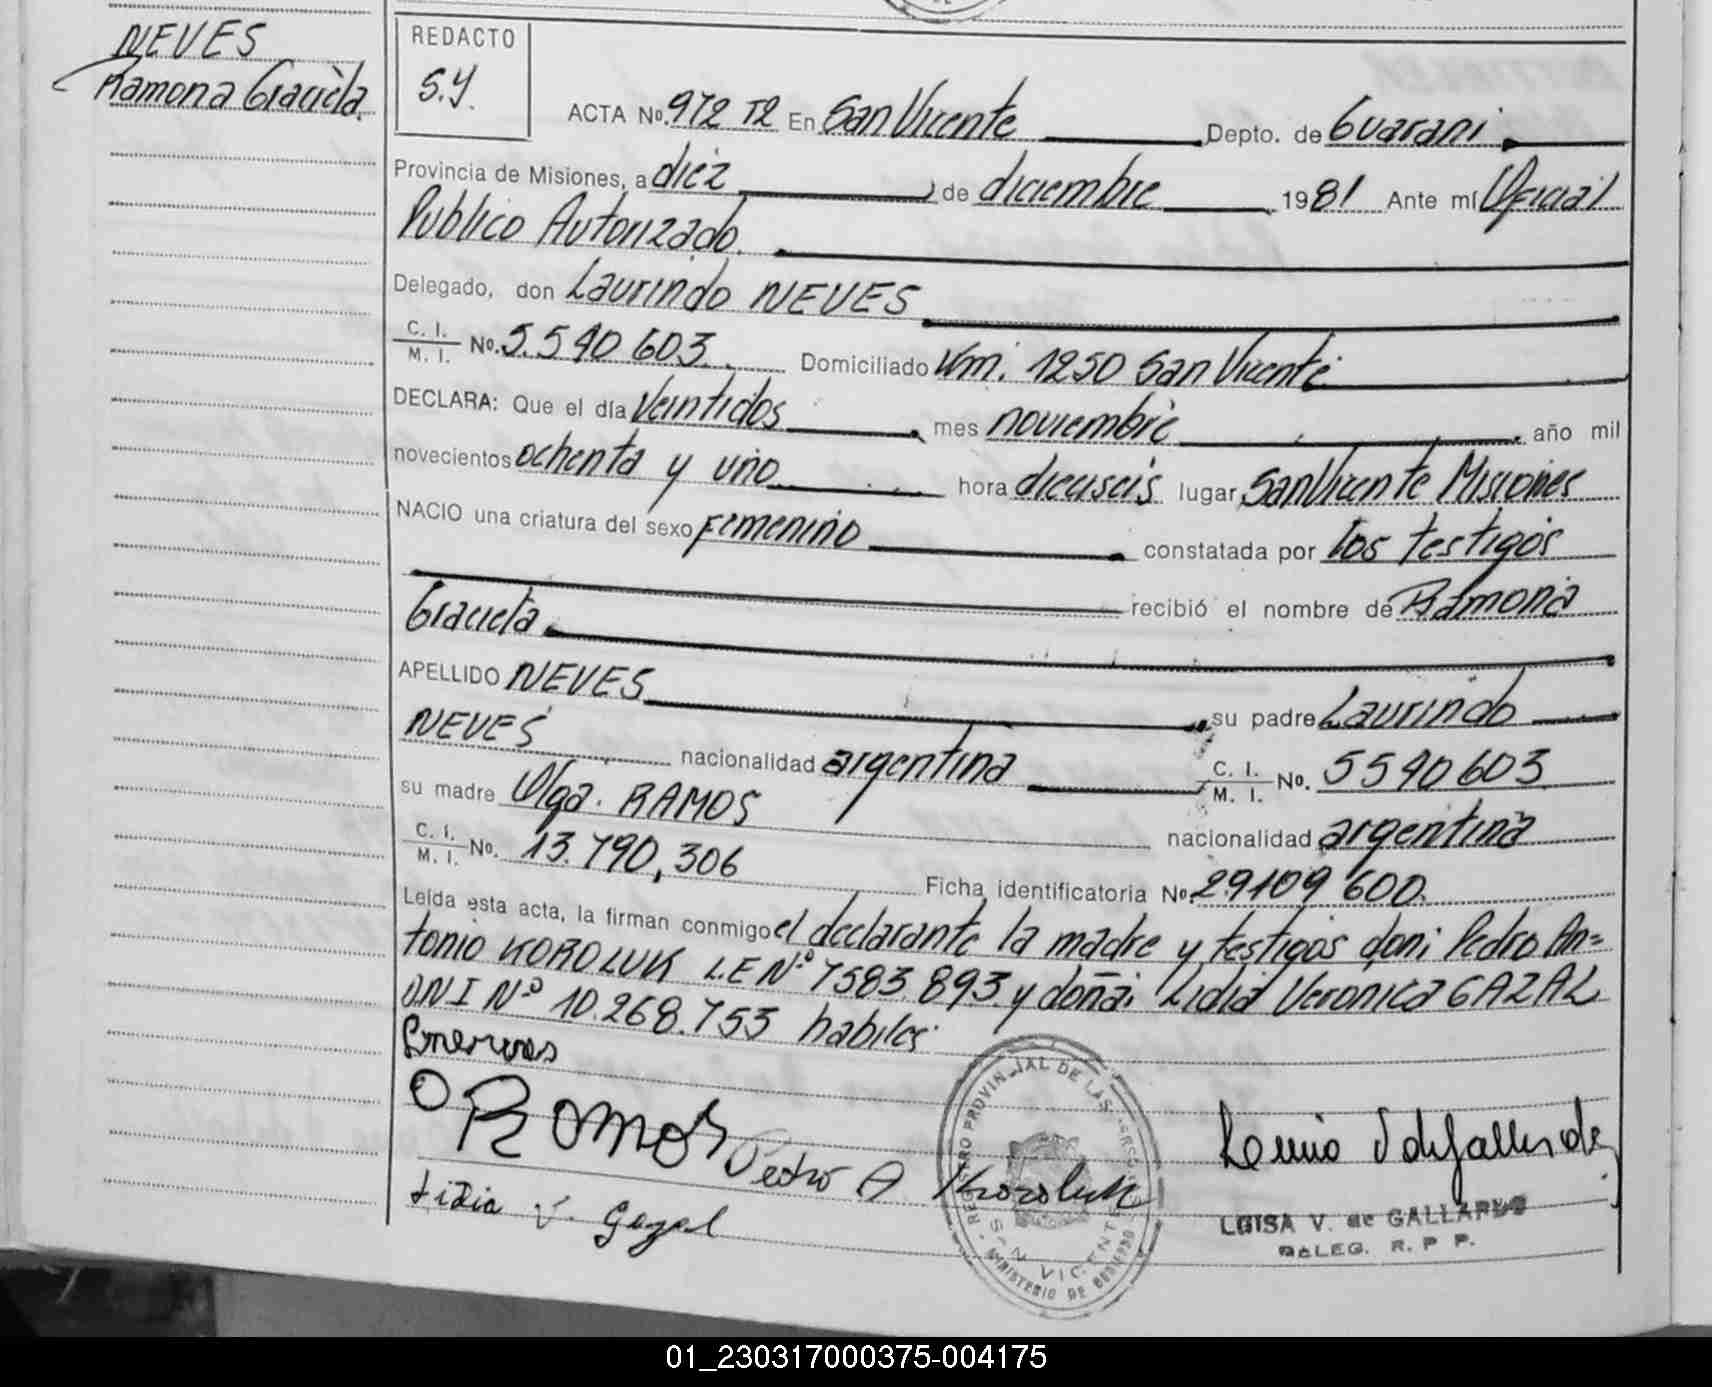 NEVES
Ramona Graciela.
REDACTO
S.Y.
ACTA No. 972 T2 En San Vicente Depto. de Guarani
Provincia de Misiones, a diez de diciembre 1981 Ante mí Oficial
Publico Autorizado.
Delegado, don Laurindo NEVES
C. I. M. I. No. 5.590 603. Domiciliado Km. 1250 San Vicente
DECLARA: Que el día Veintidos mes noviembre año mil
novecientos ochenta y uno hora dieciseis lugar San Vicente Misiones
NACIO una criatura del sexo Femenino constatada por los testigos
recibió el nombre de Ramona
Graciela
APELLIDO NEVES su padre Laurindo
NEVES nacionalidad argentina C. I. M. I. No. 5590603
su madre Olga RAMOS nacionalidad argentina
C. I. M. I. No. 13.790,306 Ficha identificatoria No. 29109600.
Leída esta acta, la firman conmigo el declarante la madre y testigos don: Pedro An=
tonio KOROLUK L.E Nº 7583.893. y doña: Lidia Veronica GAZAL
D.N I Nº 10.268.753 habiles
O Ramos
Pedro A Koroluk
Lidia V. Gazal
REGISTRO PROVINCIAL DE LAS PERSONAS
SAN VICENTE
MINISTERIO DE GOBIERNO
LUISA V. de GALLARDO
DELEG. R. P P.
01_230317000375-004175